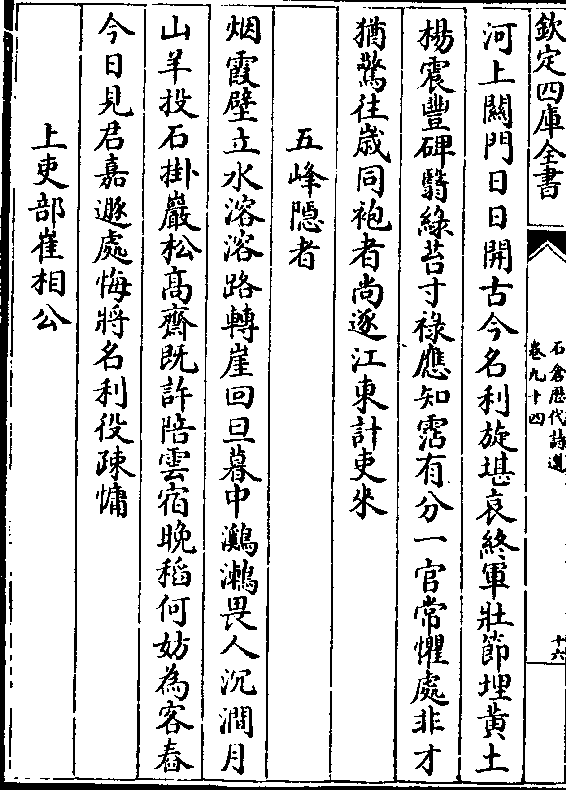 欽定四庫全書
石倉歴代詩選
卷九十四
十六
河上關門日日開古今名利旋堪哀終軍壯節埋黄土
楊震豐碑翳綠苔寸祿應知霑有分一官常懼處非才
猶驚往歳同袍者尚逐江東計吏來
五峰隠者
烟霞壁立水溶溶路轉崖回旦暮中鸂鶒畏人沉澗月
山羊投石掛巖松髙齋既許陪雲宿晚稻何妨為客舂
今日見君嘉遯處悔將名利役疎慵
上吏部崔相公